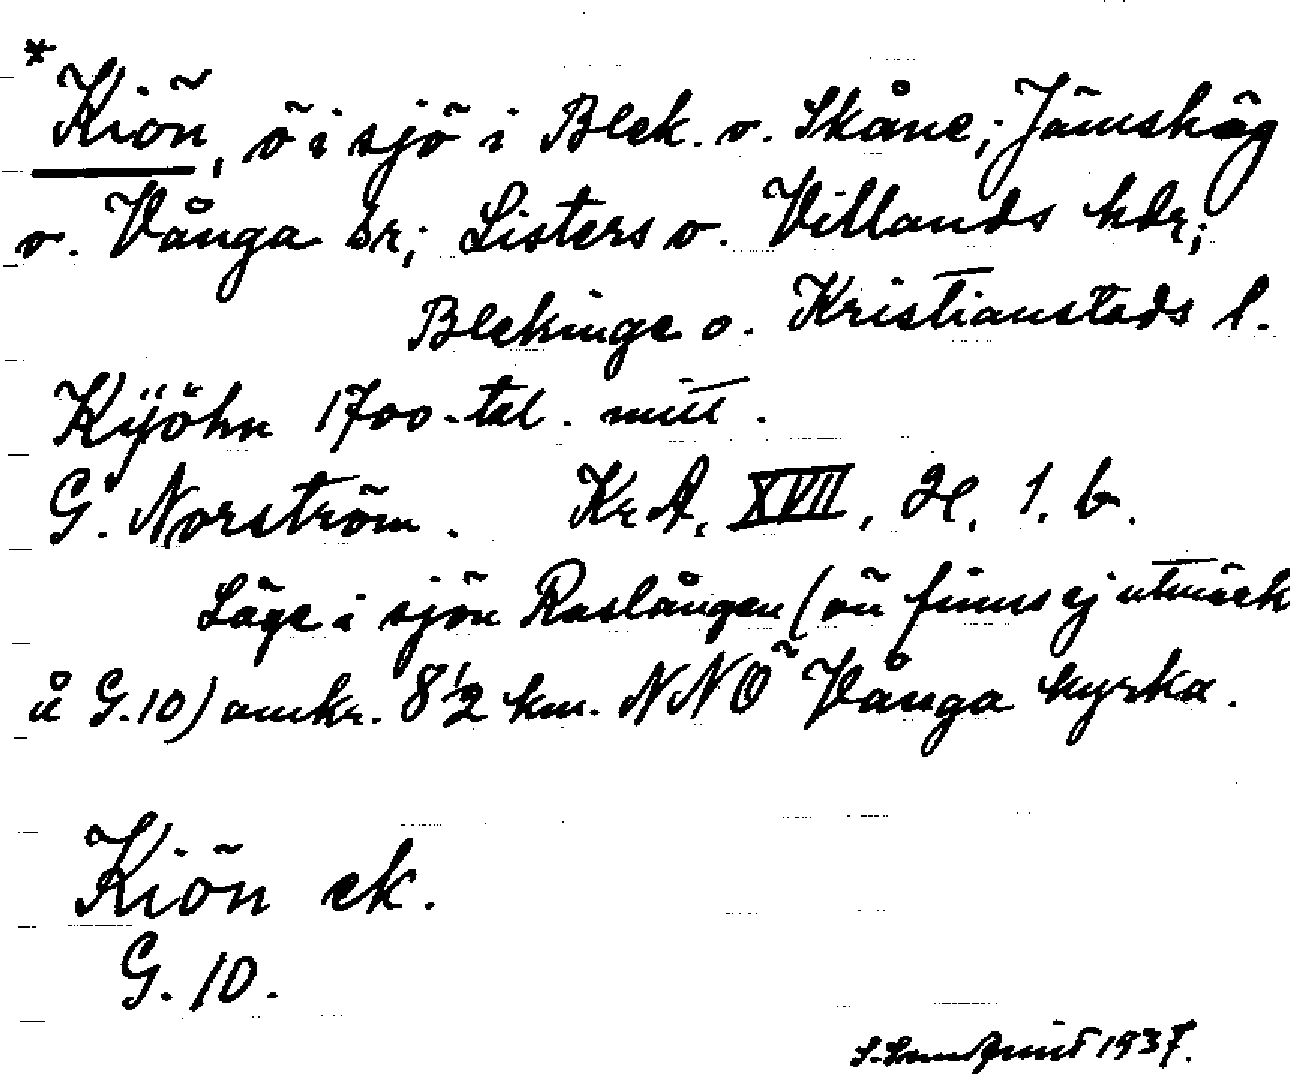 *Kiön, ö i sjö i Blek. o. Skåne; Jämshög
o. Vånga snr; Listers o. Villands hdr;
Blekinge o. Kristianstads l.
Kÿöhn 1700-tal. mitt.
G. Norström. Kr.A. XVII, 2e, 1. b.
Läge i sjön Raslången (ön finns ej utmärk
å G.10) omkr. 8 1/2 km. NNO Vånga kyrka.
Kiön ek.
G. 10.
1937.